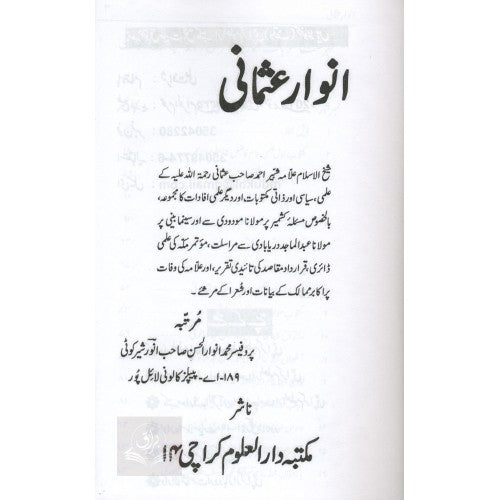 انوار عثمانی
شیخ الاسلام علامہ شبیر احمد صاحب عثمانی رحمۃ اللہ علیہ کے
علمی، سیاسی اور ذاتی مکتوبات اور دیگر علمی افادات کا مجموعہ،
بالخصوص مسئلہ کشمیر پر مولانا مودودی سے اور سینما بینی پر
مولانا عبدالماجد دریابادی سے مراسلت، مؤتمر مکہ کی علمی
ڈائری، قرارداد مقاصد کی تائیدی تقریر، اور علامہ کی وفات
پر اکابر ممالک کے بیانات اور شعرا کے مرثیے۔
مرتبہ
پروفیسر محمد انوار الحسن صاحب انور شیرکوٹی
۱۸۹۔اے۔ پیپلز کالونی لائل پور
ناشر
مکتبہ دارالعلوم کراچی ۱۴